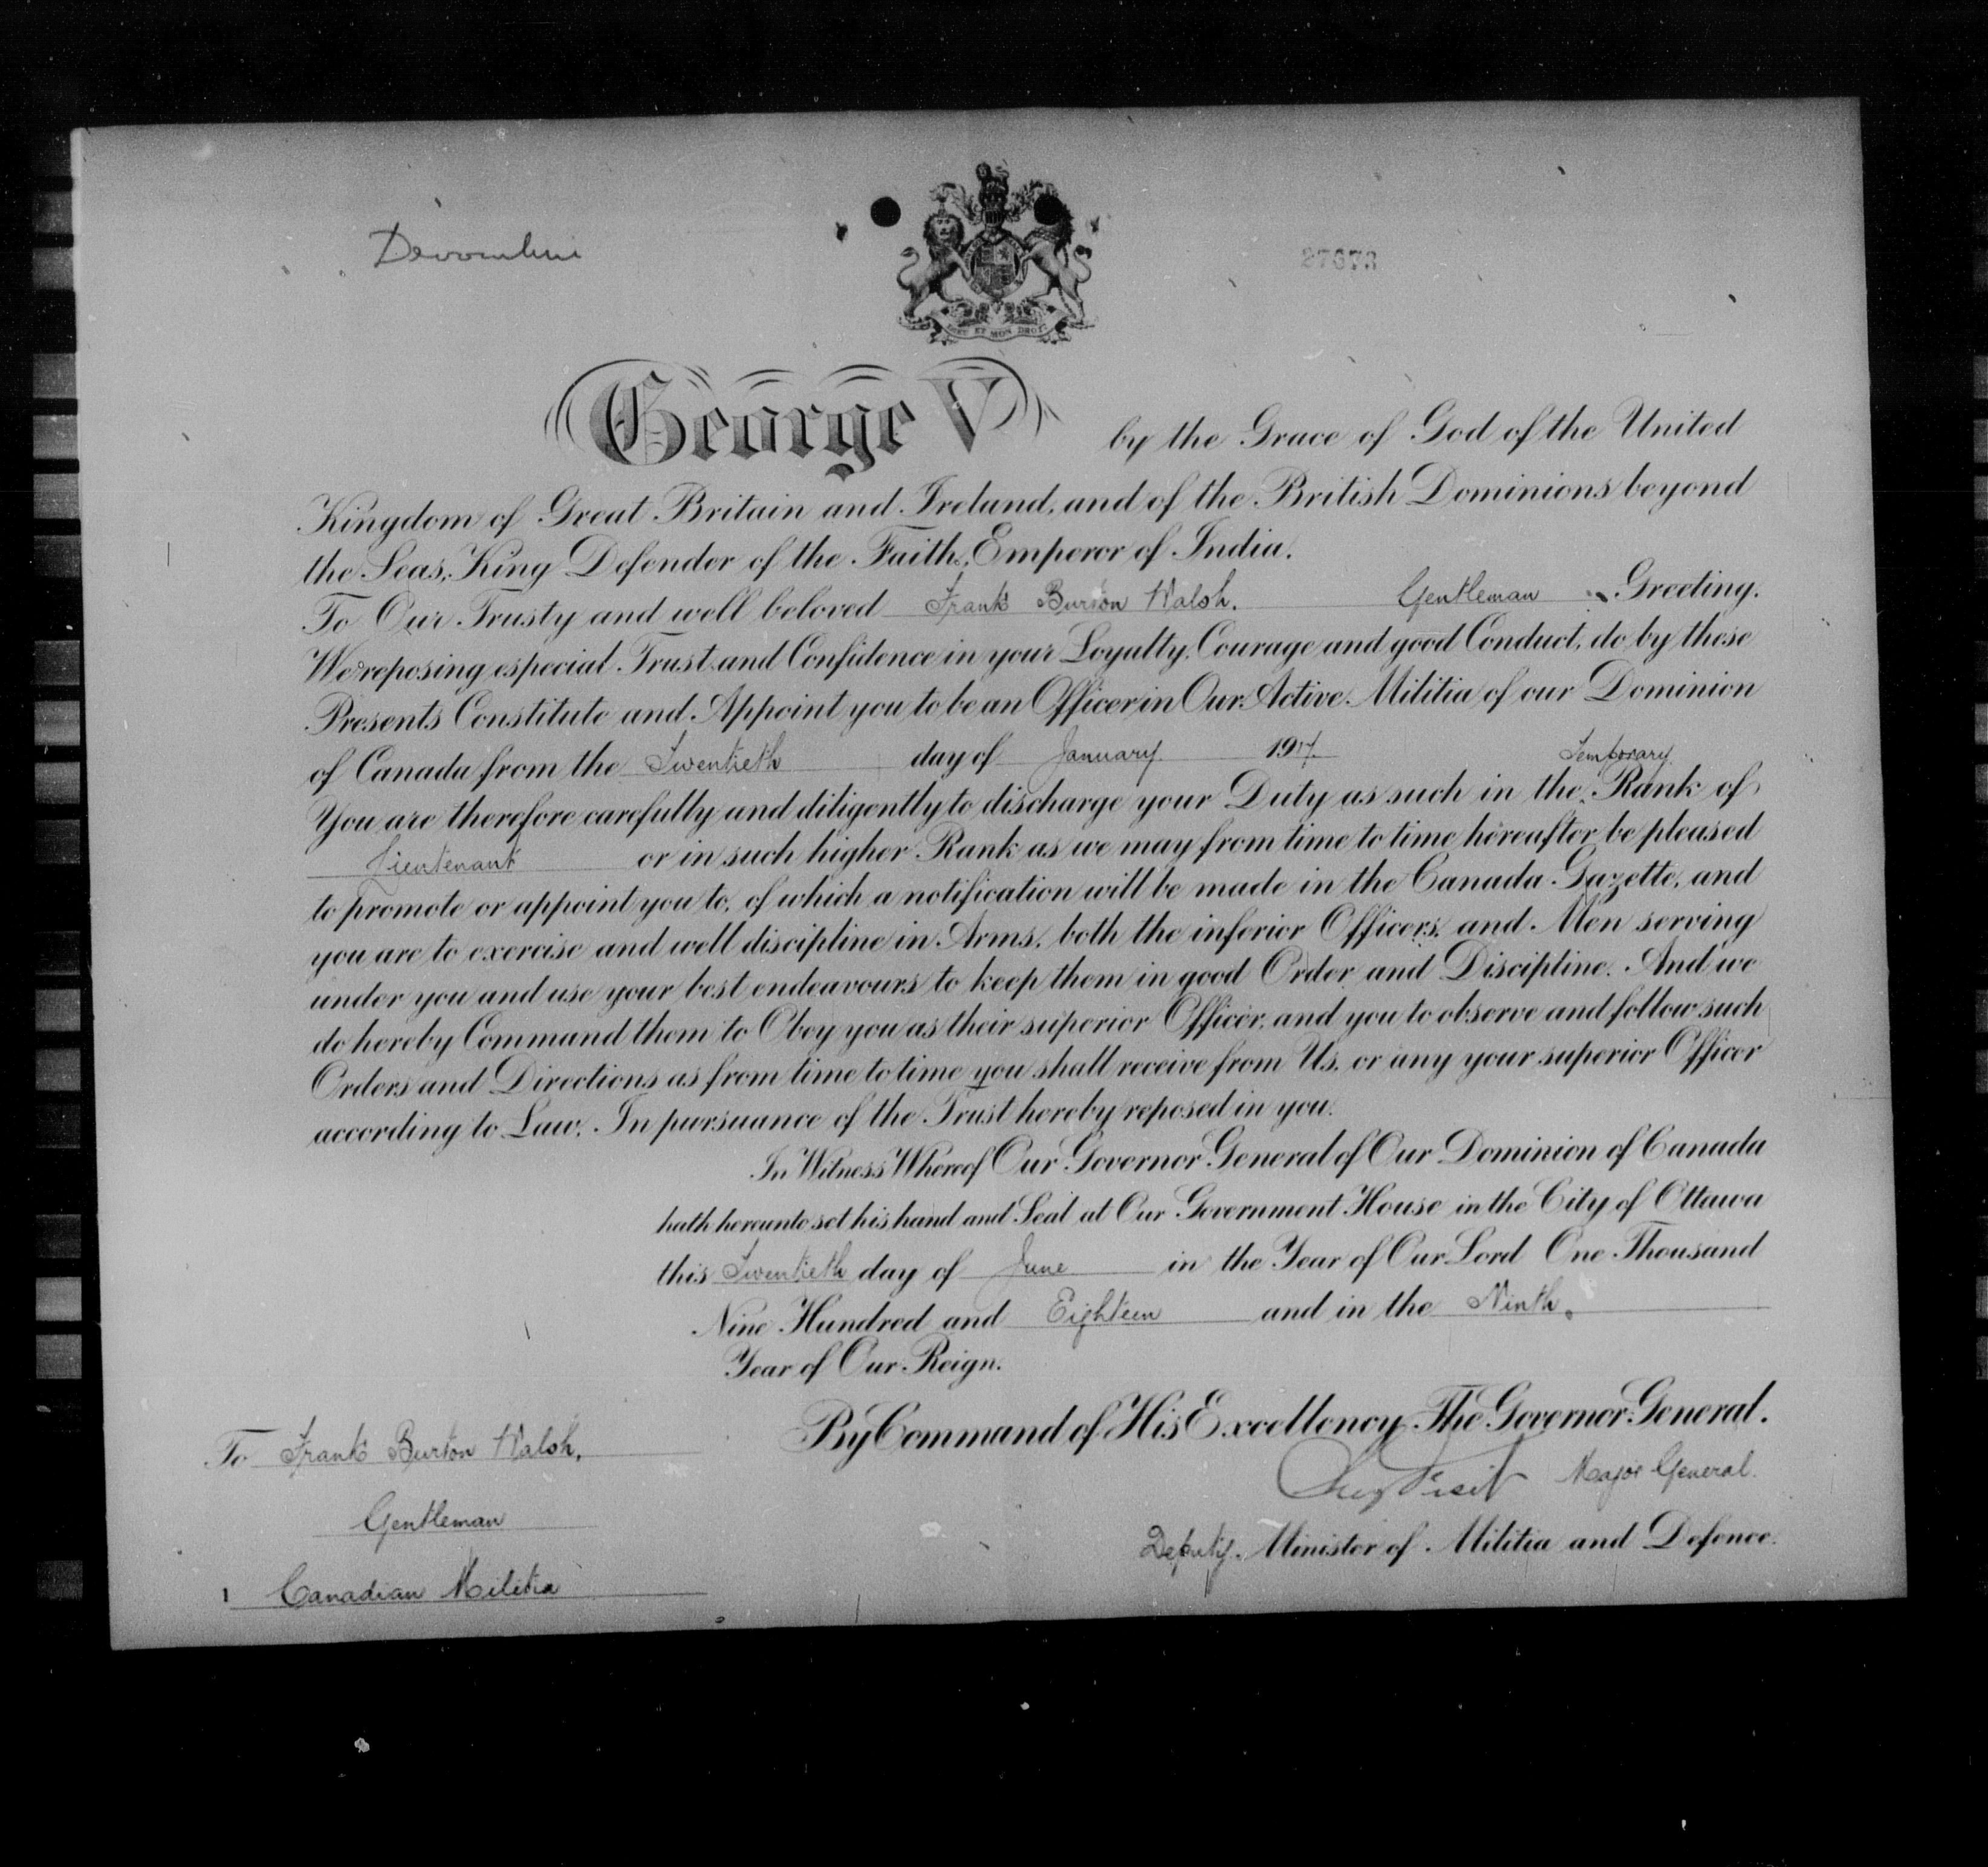 27673
DIEU ET MON DROIT
George V by the Grace of God of the United
Kingdom of Great Britain and Ireland, and of the British Dominions beyond
the Seas, King Defender of the Faith, Emperor of India.
To Our Trusty and well beloved Frank Burton Walsh. Gentleman Greeting.
We reposing especial Trust and Confidence in your Loyalty, Courage and good Conduct, do by these
Presents Constitute and Appoint you to be an Officer in Our Active Militia of our Dominion
of Canada from the Twentieth day of January 1917
Temporary
You are therefore carefully and diligently to discharge your Duty as such in the Rank of
Lieutenant or in such higher Rank as we may from time to time hereafter be pleased
to promote or appoint you to, of which a notification will be made in the Canada Gazette, and
you are to exercise and well discipline in Arms, both the inferior Officers and Men serving
under you and use your best endeavours to keep them in good Order and Discipline. And we
do hereby Command them to Obey you as their superior Officer, and you to observe and follow such
Orders and Directions as from time to time you shall receive from Us, or any your superior Officer
according to Law. In pursuance of the Trust hereby reposed in you.
In Witness Whereof Our Governor General of Our Dominion of Canada
hath hereunto set his hand and Seal at Our Government House in the City of Ottawa
this Twentieth day of June in the Year of Our Lord One Thousand
Nine Hundred and Eighteen and in the Ninth.
Year of Our Reign.
By Command of His Excellency The Governor General.
Major General.
Deputy Minister of Militia and Defence.
To Frank Burton Walsh,
Gentleman
Canadian Militia